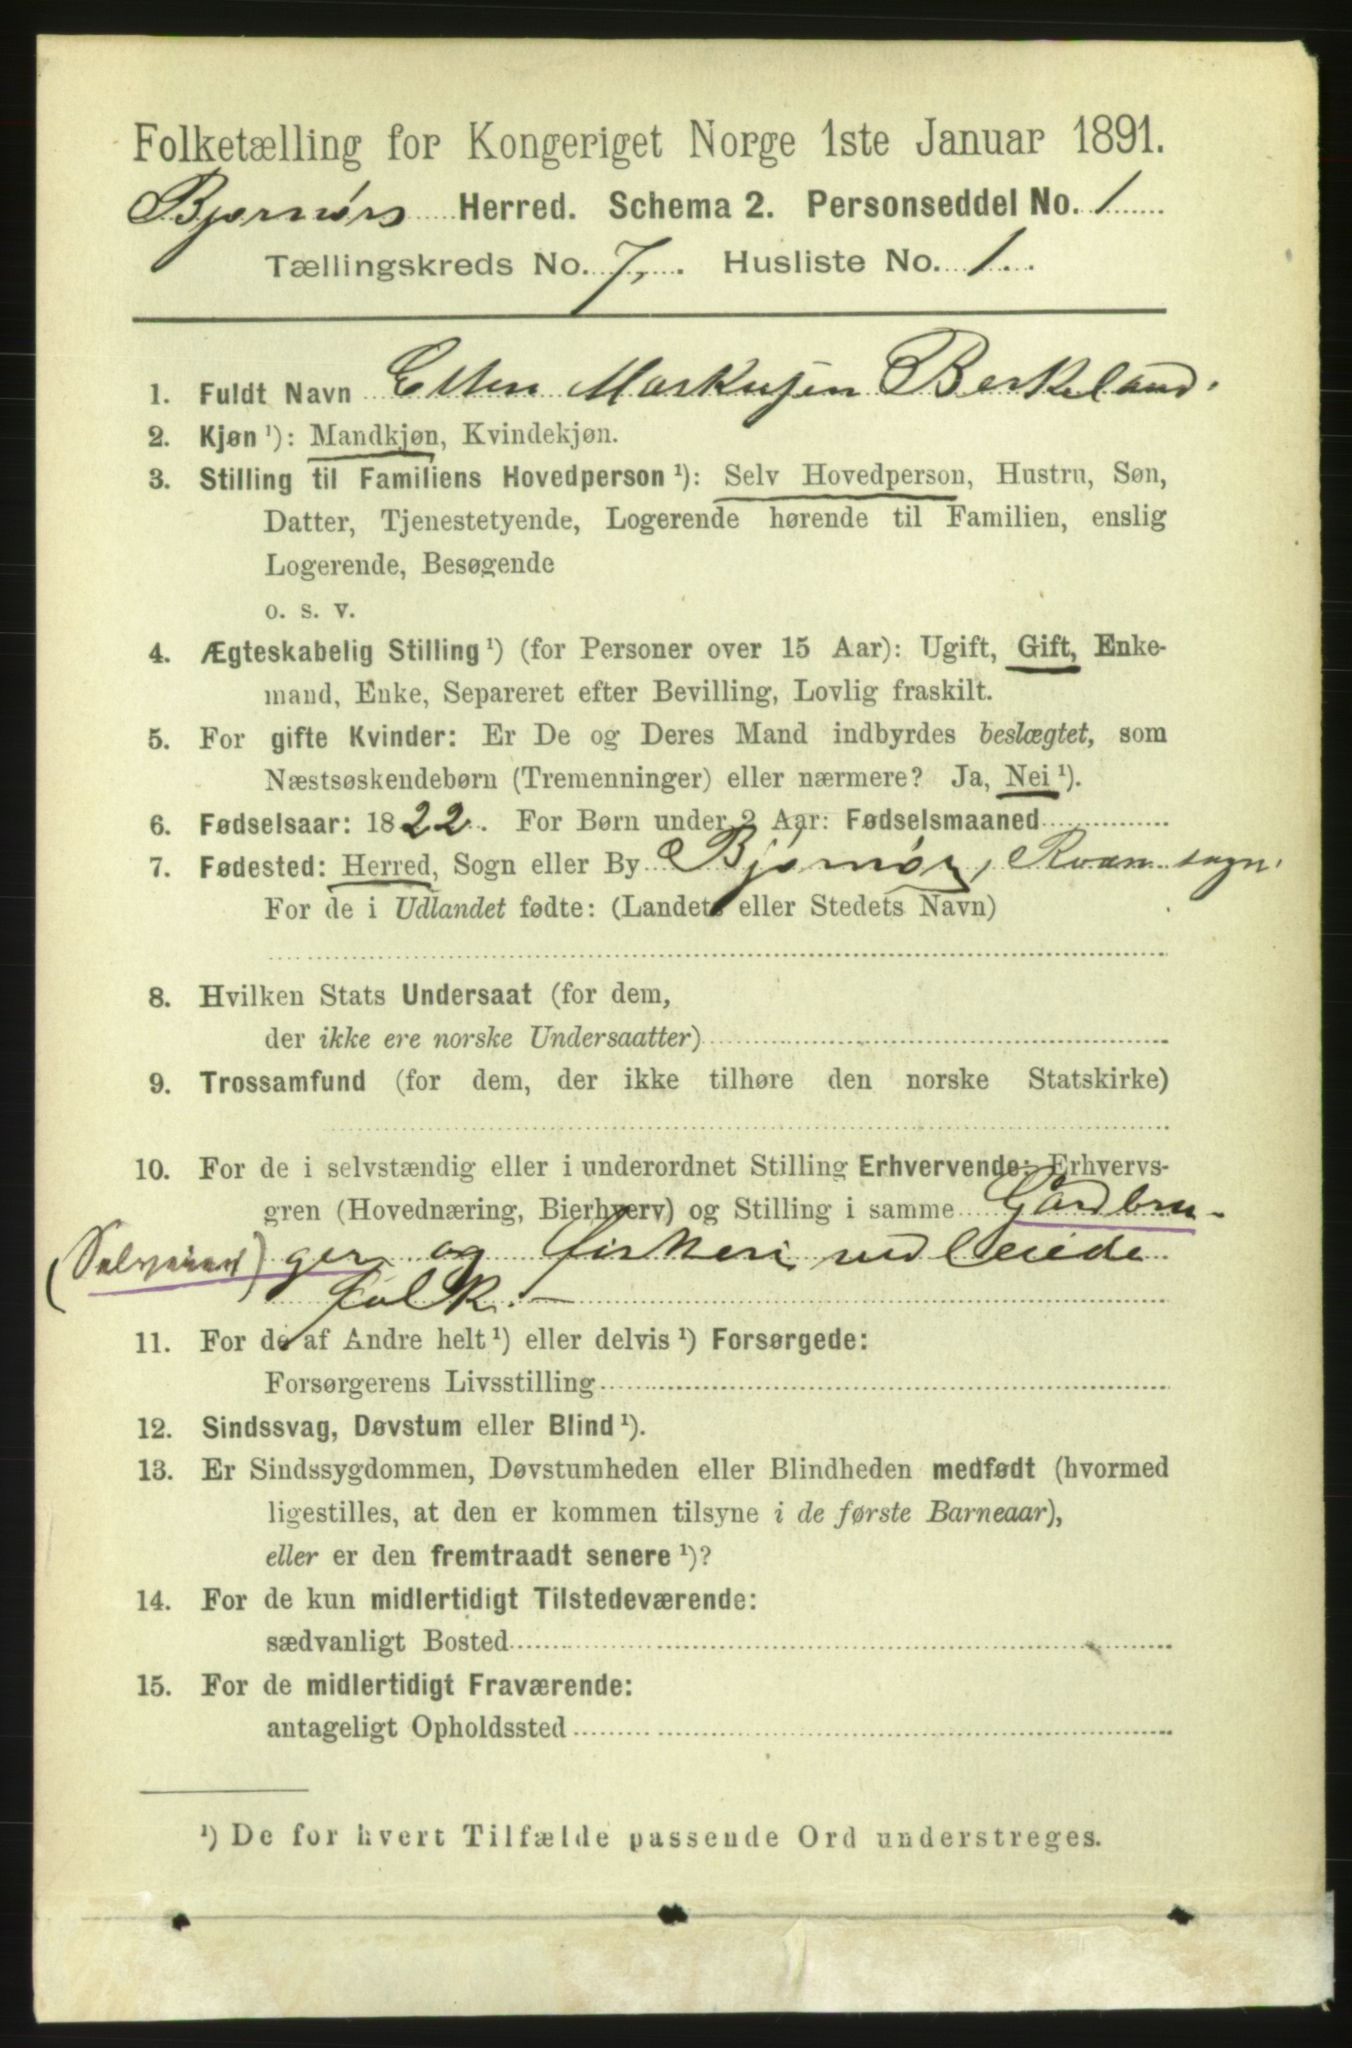 Folketælling for Kongeriget Norge 1ste Januar 1891.
Bjørnørs Herred. Schema 2. Personseddel No. 1
Tællingskreds No. 7, Husliste No. 1.
1. Fuldt Navn Markusen Berkeland.
2. Kjøn ¹): Mandkjøn, Kvindekjøn.
3. Stilling til Familiens Hovedperson ¹): Selv Hovedperson, Hustru, Søn,
Datter, Tjenestetyende, Logerende hørende til Familien, enslig
Logerende, Besøgende
o. s. v.
4. Ægteskabelig Stilling ¹) (for Personer over 15 Aar): Ugift, Gift, Enke-
mand, Enke, Separeret efter Bevilling, Lovlig fraskilt.
5. For gifte Kvinder: Er De og Deres Mand indbyrdes beslægtet, som
Næstsøskendebørn (Tremenninger) eller nærmere? Ja, Nei ¹).
6. Fødselsaar: 1822. For Børn under 2 Aar: Fødselsmaaned
7. Fødested: Herred, Sogn eller By Bjørnør, Roan sogn.
For de i Udlandet fødte: (Landets eller Stedets Navn)
8. Hvilken Stats Undersaat (for dem,
der ikke ere norske Undersaatter)
9. Trossamfund (for dem, der ikke tilhøre den norske Statskirke)
10. For de i selvstændig eller i underordnet Stilling Erhvervende: Erhvervs-
gren (Hovednæring, Bierhverv) og Stilling i samme Gårdbru-
(Selveier) ger og fiskeri ved leiede
folk.-
11. For de af Andre helt ¹) eller delvis ¹) Forsørgede:
Forsørgerens Livsstilling
12. Sindssvag, Døvstum eller Blind ¹).
13. Er Sindssygdommen, Døvstumheden eller Blindheden medfødt (hvormed
ligestilles, at den er kommen tilsyne i de første Barneaar),
eller er den fremtraadt senere ¹)?
14. For de kun midlertidigt Tilstedeværende:
sædvanligt Bosted
15. For de midlertidigt Fraværende:
antageligt Opholdssted
¹) De for hvert Tilfælde passende Ord understreges.